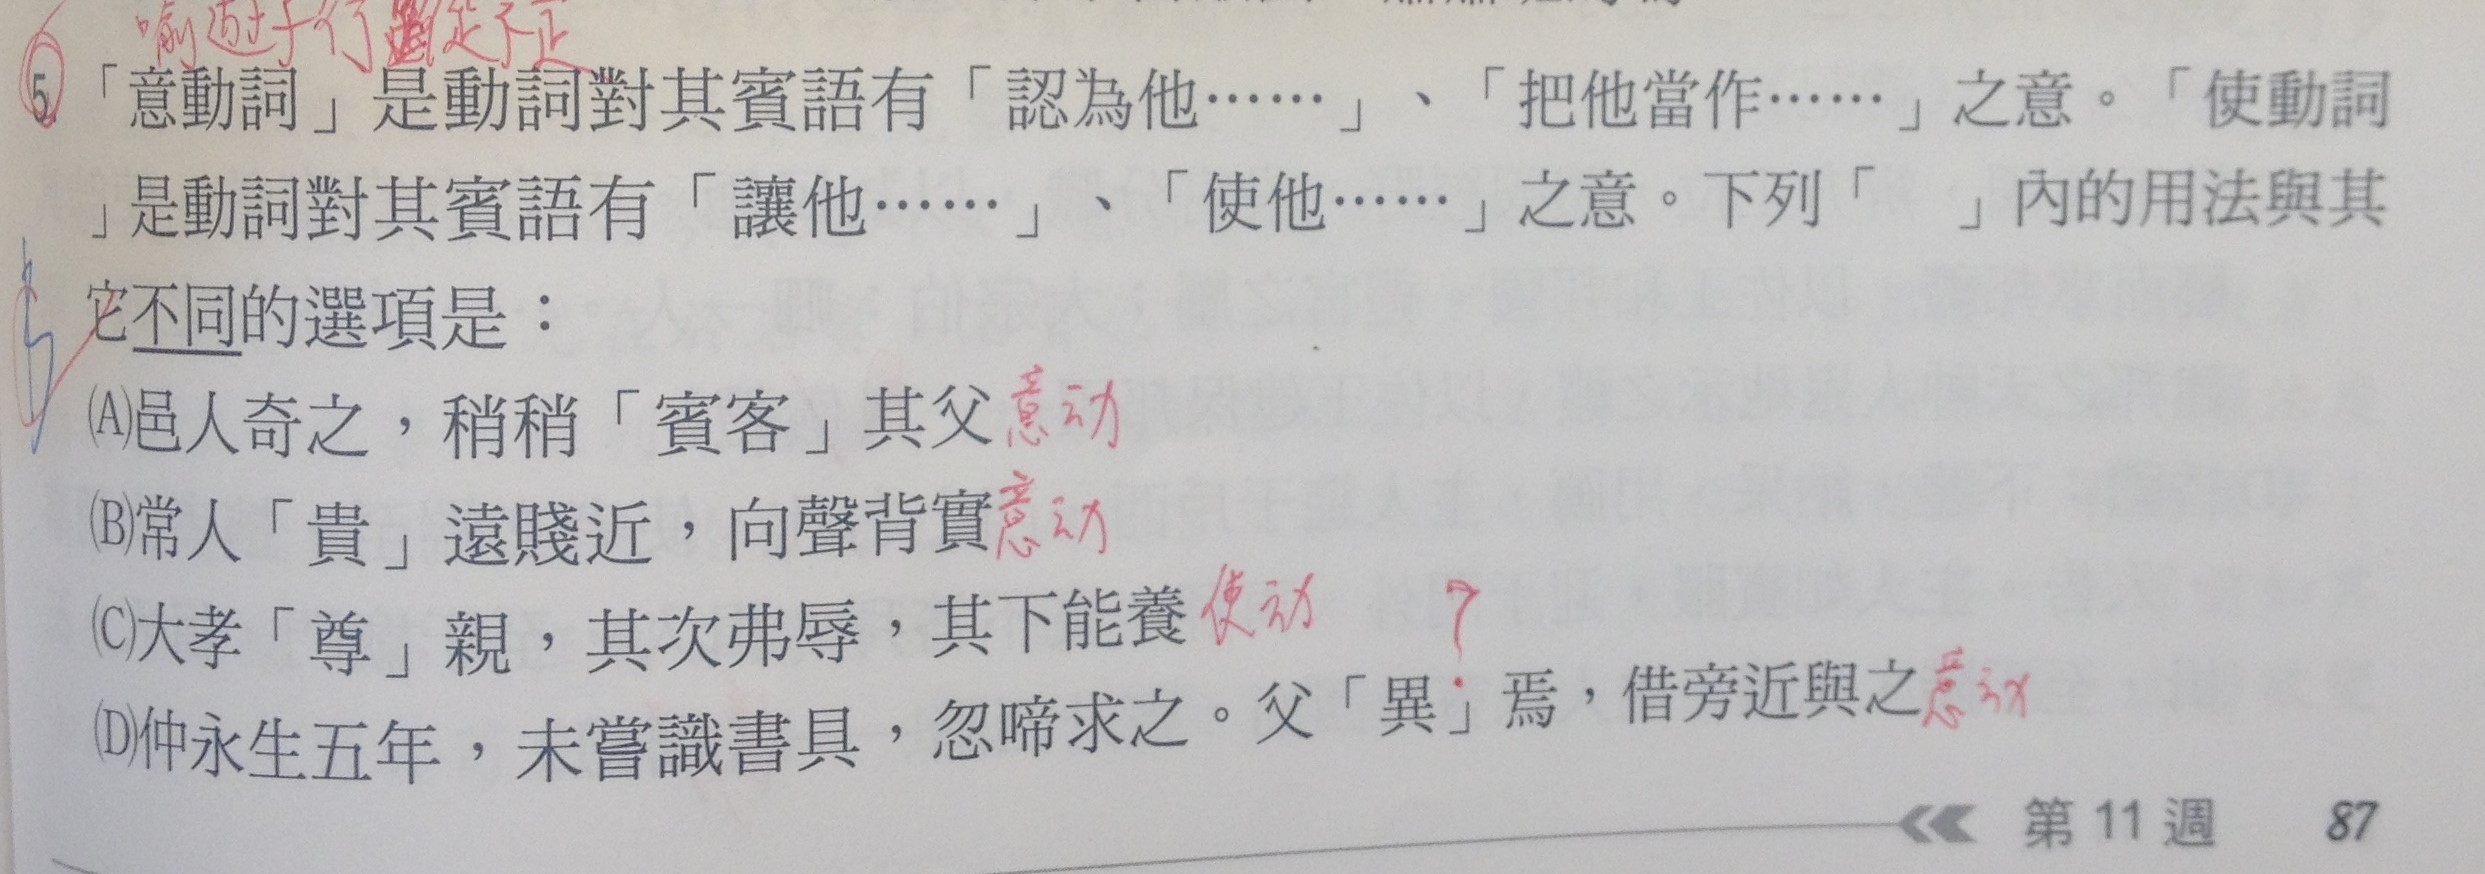 喻遊子行蹤不定
5.「意動詞」是動詞對其賓語有「認為他……」、「把他當作……」之意。「使動詞
」是動詞對其賓語有「讓他……」、「使他……」之意。下列「　」內的用法與其
它不同的選項是：
(A)邑人奇之，稍稍「賓客」其父 意动
(B)常人「貴」遠賤近，向聲背實 意动
(C)大孝「尊」親，其次弗辱，其下能養 使动 ?
(D)仲永生五年，未嘗識書具，忽啼求之。父「異」焉，借旁近與之 意动
第 11 週 87